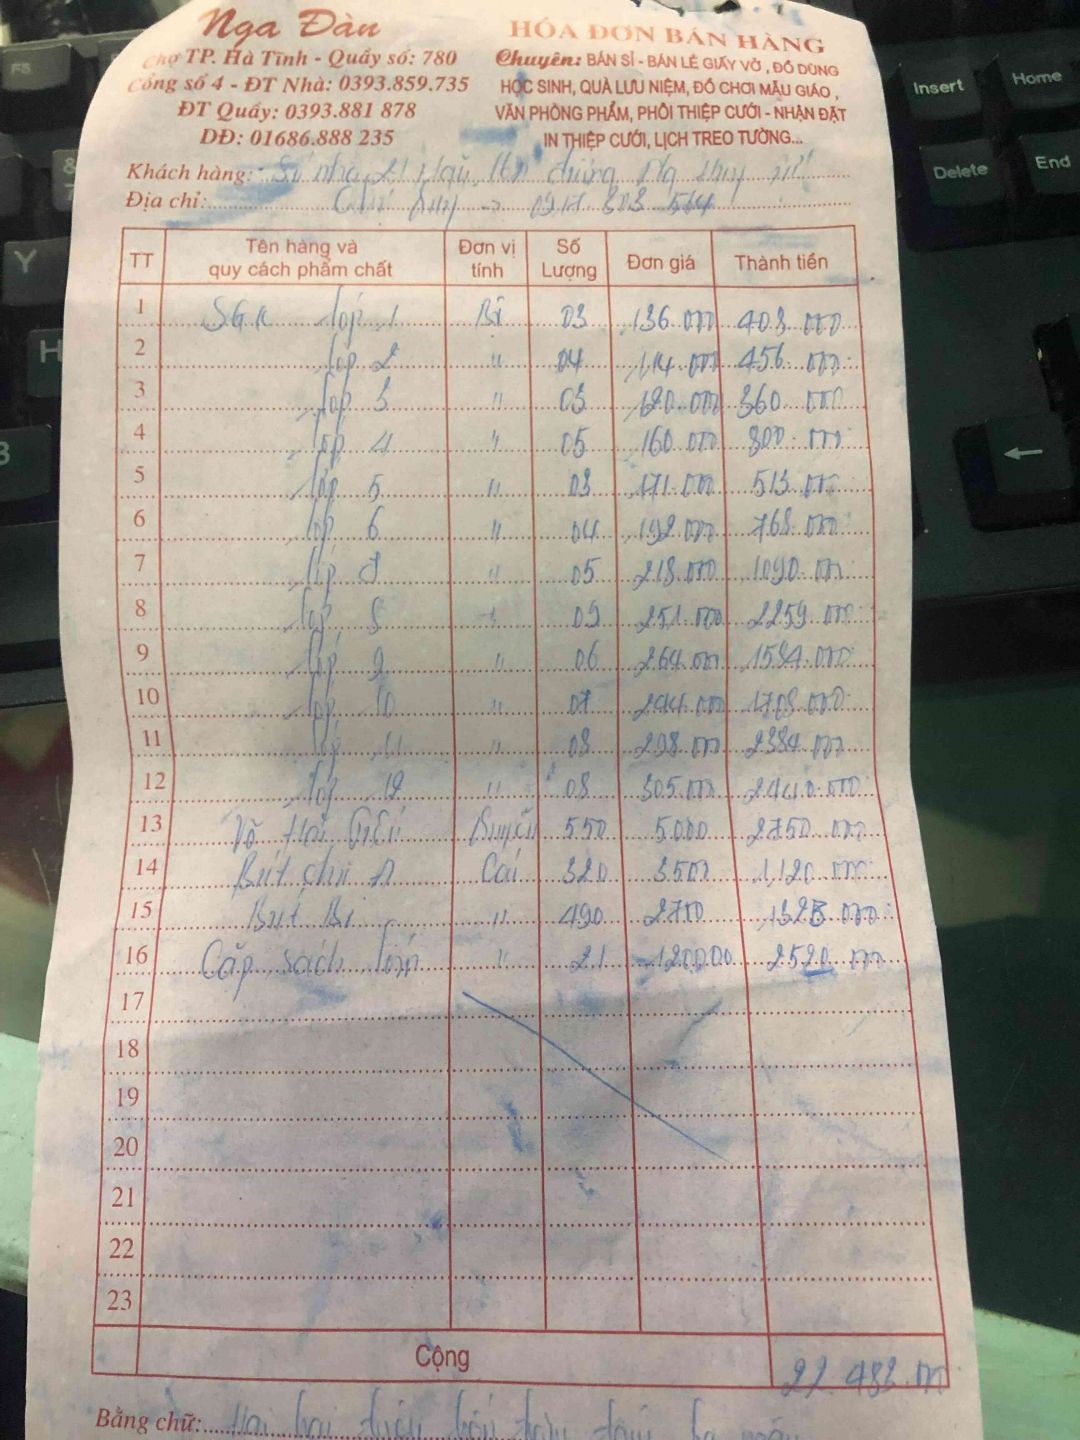 Nga Đàn
Chợ TP. Hà Tĩnh - Quầy số: 780
Cổng số 4 - ĐT Nhà: 0393.859.735
ĐT Quầy: 0393.881 878
DĐ: 01686.888 235
HÓA ĐƠN BÁN HÀNG
Chuyên: BÁN SỈ - BÁN LẺ GIẤY VỞ, ĐỒ DÙNG
HỌC SINH, QUÀ LƯU NIỆM, ĐỒ CHƠI MẪU GIÁO,
VĂN PHÒNG PHẨM, PHÔI THIỆP CƯỚI - NHẬN ĐẶT
IN THIỆP CƯỚI, LỊCH TREO TƯỜNG...
Khách hàng:
Địa chỉ: 0917 303 514
TT Tên hàng và quy cách phẩm chất Đơn vị tính Số Lượng Đơn giá Thành tiền
1 SGK lớp 1 Bộ 03 136.000 408.000
2 lớp 2 " 04 114.000 456.000
3 lớp 3 " 03 120.000 360.000
4 lớp 4 " 05 160.000 800.000
5 lớp 5 " 03 171.000 513.000
6 lớp 6 " 04 192.000 768.000
7 lớp 7 " 05 218.000 1090.000
8 lớp 8 " 09 251.000 2259.000
9 lớp 9 " 06 264.000 1584.000
10 lớp 10 " 07 244.000 1708.000
11 lớp 11 " 08 298.000 2384.000
12 lớp 12 " 08 305.000 2440.000
13 Vở Hải Tiến Quyển 550 5.000 2750.000
14 Bút chì A Cái 320 3500 1,120.000
15 Bút Bi " 490 2700 1323.000
16 Cặp sách lớn " 21 120000 2520.000
17
18
19
20
21
22
23
Cộng 22.483.000
Bằng chữ: Hai hai triệu bốn trăm tám ba